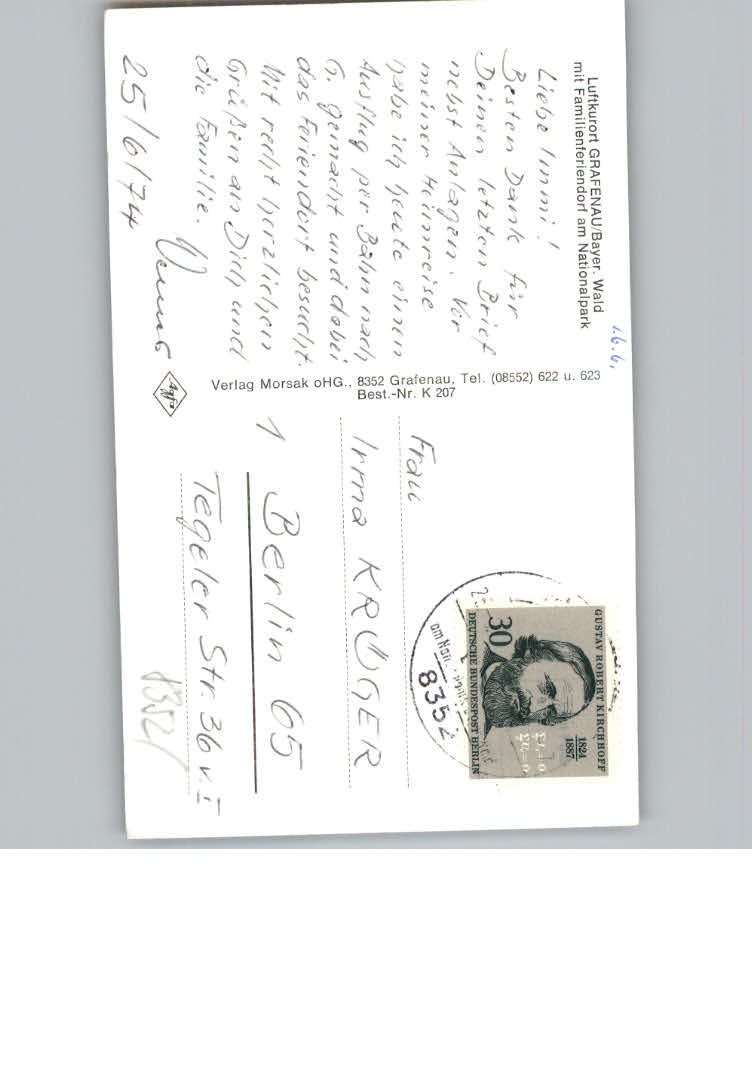 Luftkurort GRAFENAU/Bayer. Wald
mit Familienferiendorf am Nationalpark
Liebe Immi!
Besten Dank für
Deinen letzten Brief
nebst Anlagen. Vor
meiner Heimreise
habe ich heute einen
Ausflug per Bahn nach
G. gemacht und dabei
das Feriendorf besucht.
Mit recht herzlichen
Grüßen an Dich und
die Familie.
25/6/74
Verlag Morsak oHG., 8352 Grafenau, Tel. (08552) 622 u. 623
Best.-Nr. K 207
Agfa
Frau
Irma KRÜGER
1 Berlin 65
Tegeler Str. 36 v. I
8352
GUSTAV ROBERT KIRCHHOFF
1824
1887
30
DEUTSCHE BUNDESPOST BERLIN
8352